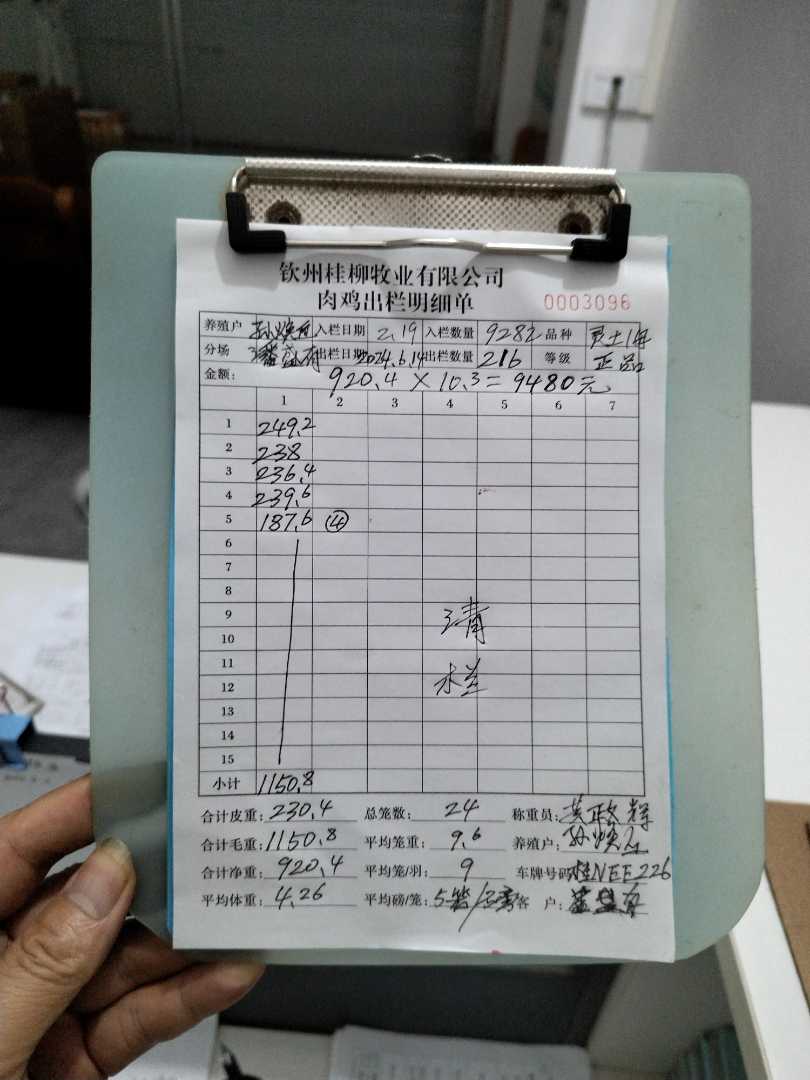 钦州桂柳牧业有限公司
肉鸡出栏明细单 0003096
养殖户 孙焕 入栏日期 2.19 入栏数量 9282 品种 灵土1号
分场 出栏日期 2024.6.14 出栏数量 216 等级 正品
金额: 920.4 × 10.3 = 9480元
1 2 3 4 5 6 7
1 249.2
2 238
3 236.4
4 239.6
5 187.6 ④
6
7
8
9 清
10
11
12 栏
13
14
15
小计 1150.8
合计皮重: 230.4 总笼数: 24 称重员: 黄政辉
合计毛重: 1150.8 平均笼重: 9.6 养殖户: 孙焕
合计净重: 920.4 平均笼/羽: 9 车牌号码 桂NEE226
平均体重: 4.26 平均磅/笼: 5 客户: